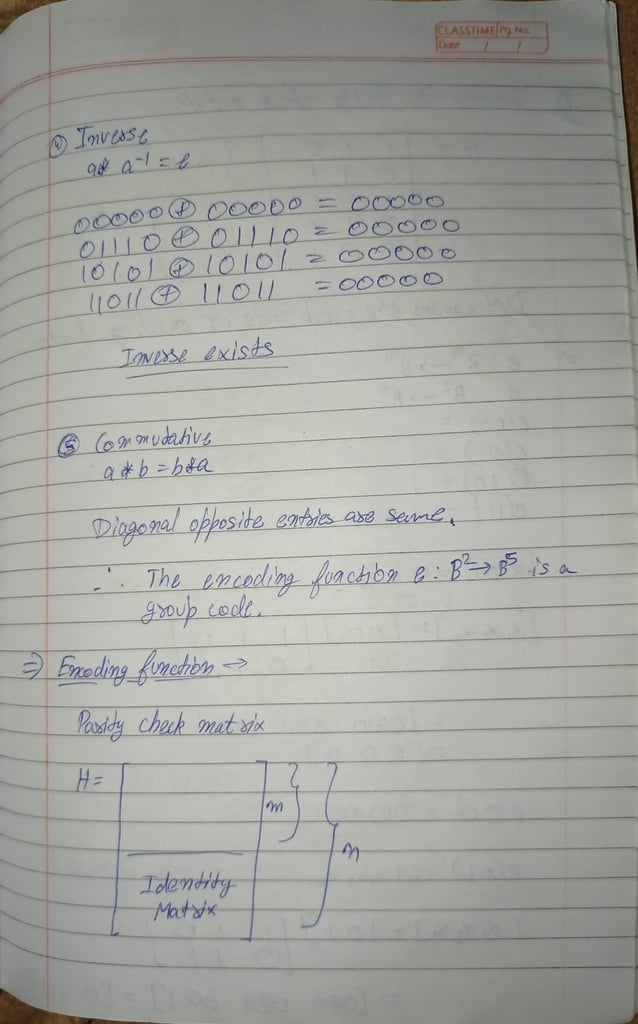 CLASSTIME Pg. No.
Date / /
④ Inverse
a* a⁻¹ = e
00000 ⊕ 00000 = 00000
01110 ⊕ 01110 = 00000
10101 ⊕ 10101 = 00000
11011 ⊕ 11011 = 00000
Inverse exists
⑤ Commutative
a * b = b*a
Diagonal opposite entries are same.
∴ The encoding function e : B² → B⁵ is a
group code.
⇒ Encoding function →
Parity check matrix
H =
m
n
Identity
Matrix